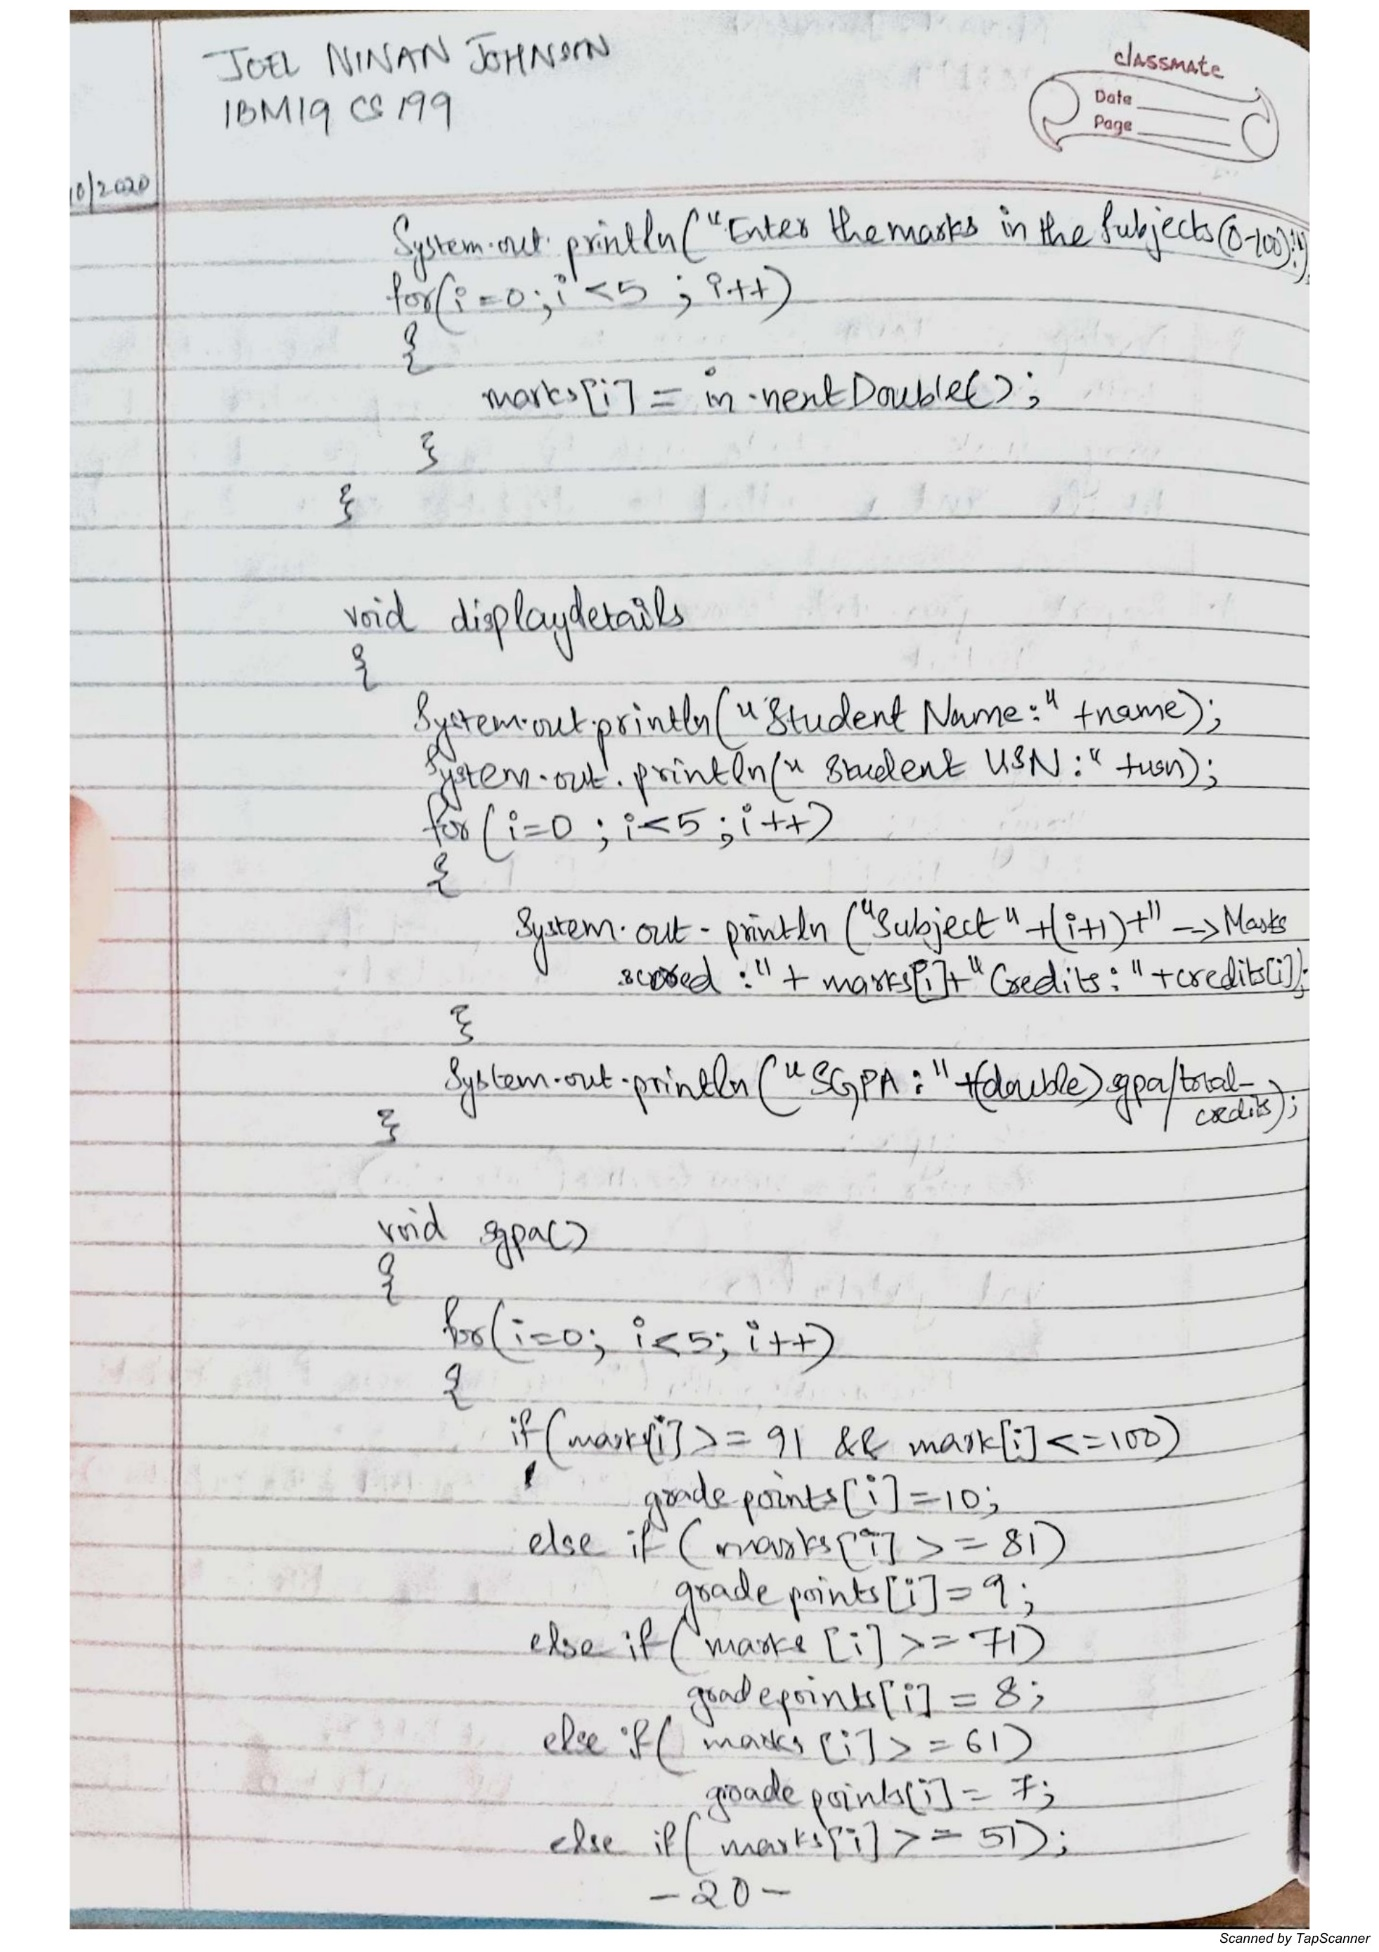 JOEL NINAN JOHNSON
1BM19 CS 199
classmate
Date
Page
10/2020
System.out.println("Enter the marks in the Subjects(0-100):");
for(i=0; i<5 ; i++)
{
marks[i] = in.nextDouble();
}
}
void displaydetails
{
System.out.println("Student Name:" +name);
System.out.println(" Student USN :" +usn);
for (i=0 ; i<5 ; i++)
{
System.out.println ("Subject "+(i+1)+" --> Marks
scored :" + marks[i]+" Credits: "+credits[i]);
}
System.out.println ("SGPA : "+(double) gpa/total-
credits);
}
void sgpa()
{
for(i=0; i<5; i++)
{
if(mark[i] >= 91 && mark[i] <=100)
gradepoints[i]=10;
else if (marks[i] >= 81)
grade points[i]=9;
else if (marks [i] >= 71)
gradepoints[i] = 8;
else if( marks [i] >= 61)
grade points[i] = 7;
else if( marks[i] >= 51);
-20-
Scanned by TapScanner